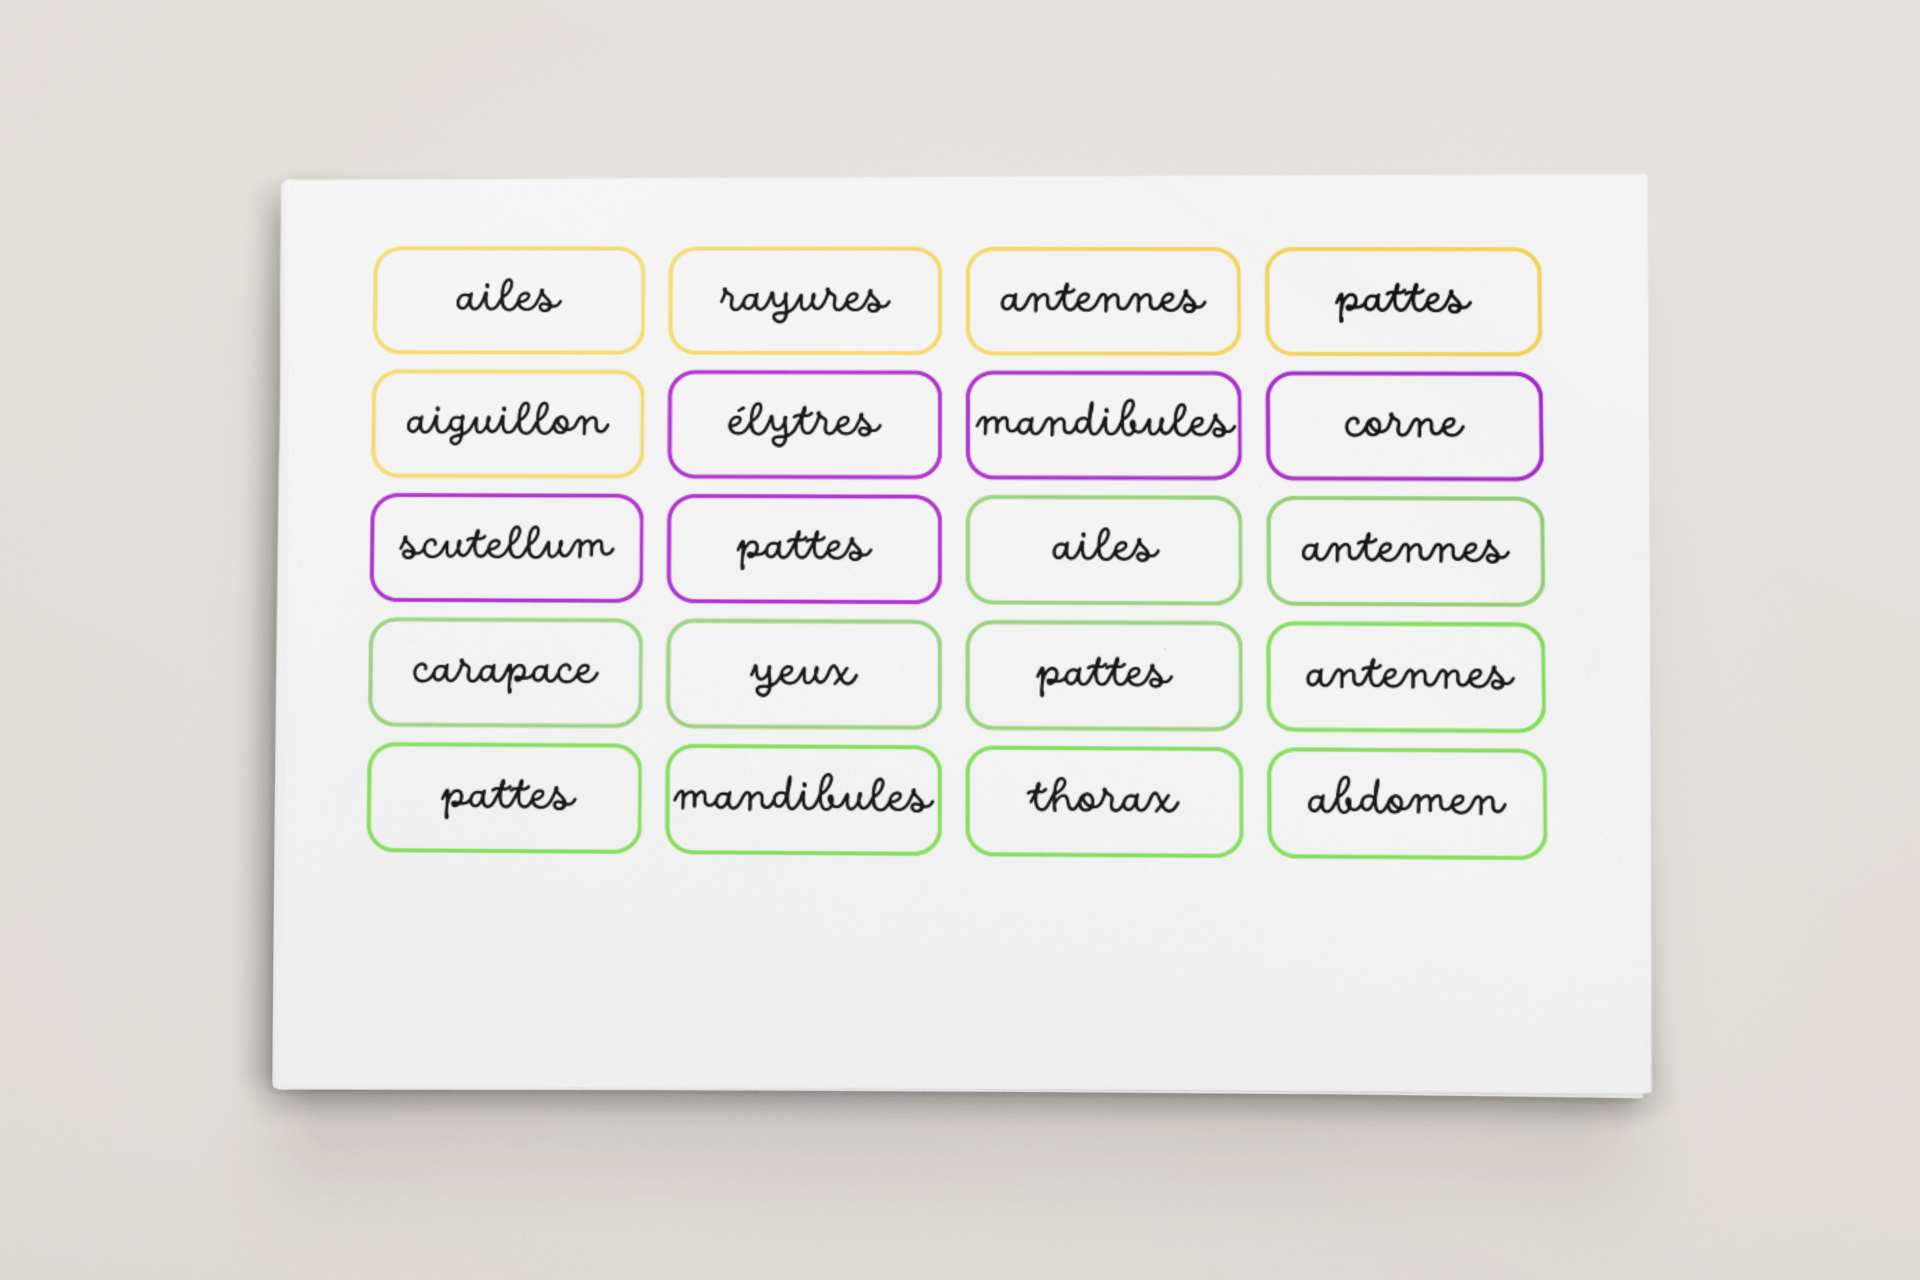 ailes rayures antennes pattes
aiguillon élytres mandibules corne
scutellum pattes ailes antennes
carapace yeux pattes antennes
pattes mandibules thorax abdomen